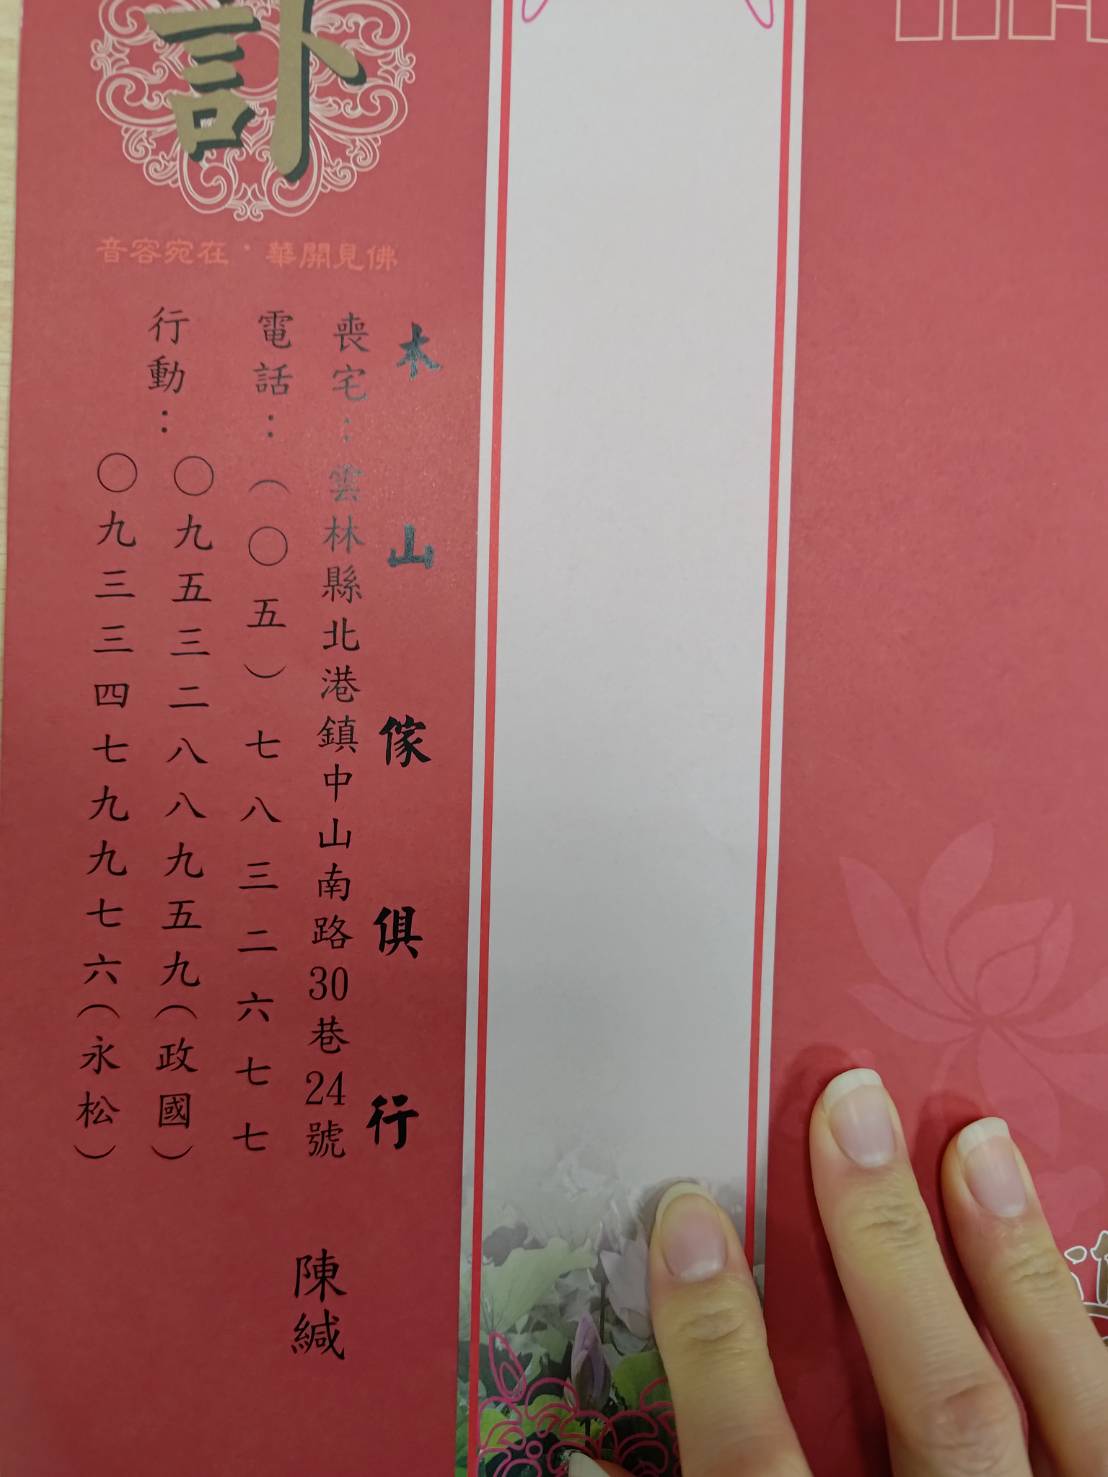 訃
音容宛在·華開見佛
木山傢俱行
喪宅：雲林縣北港鎮中山南路30巷24號
電話：（〇五）七八三二六七七
行動：〇九五三二八八九五九（政國）
〇九三三四七九九七六（永松）
陳緘